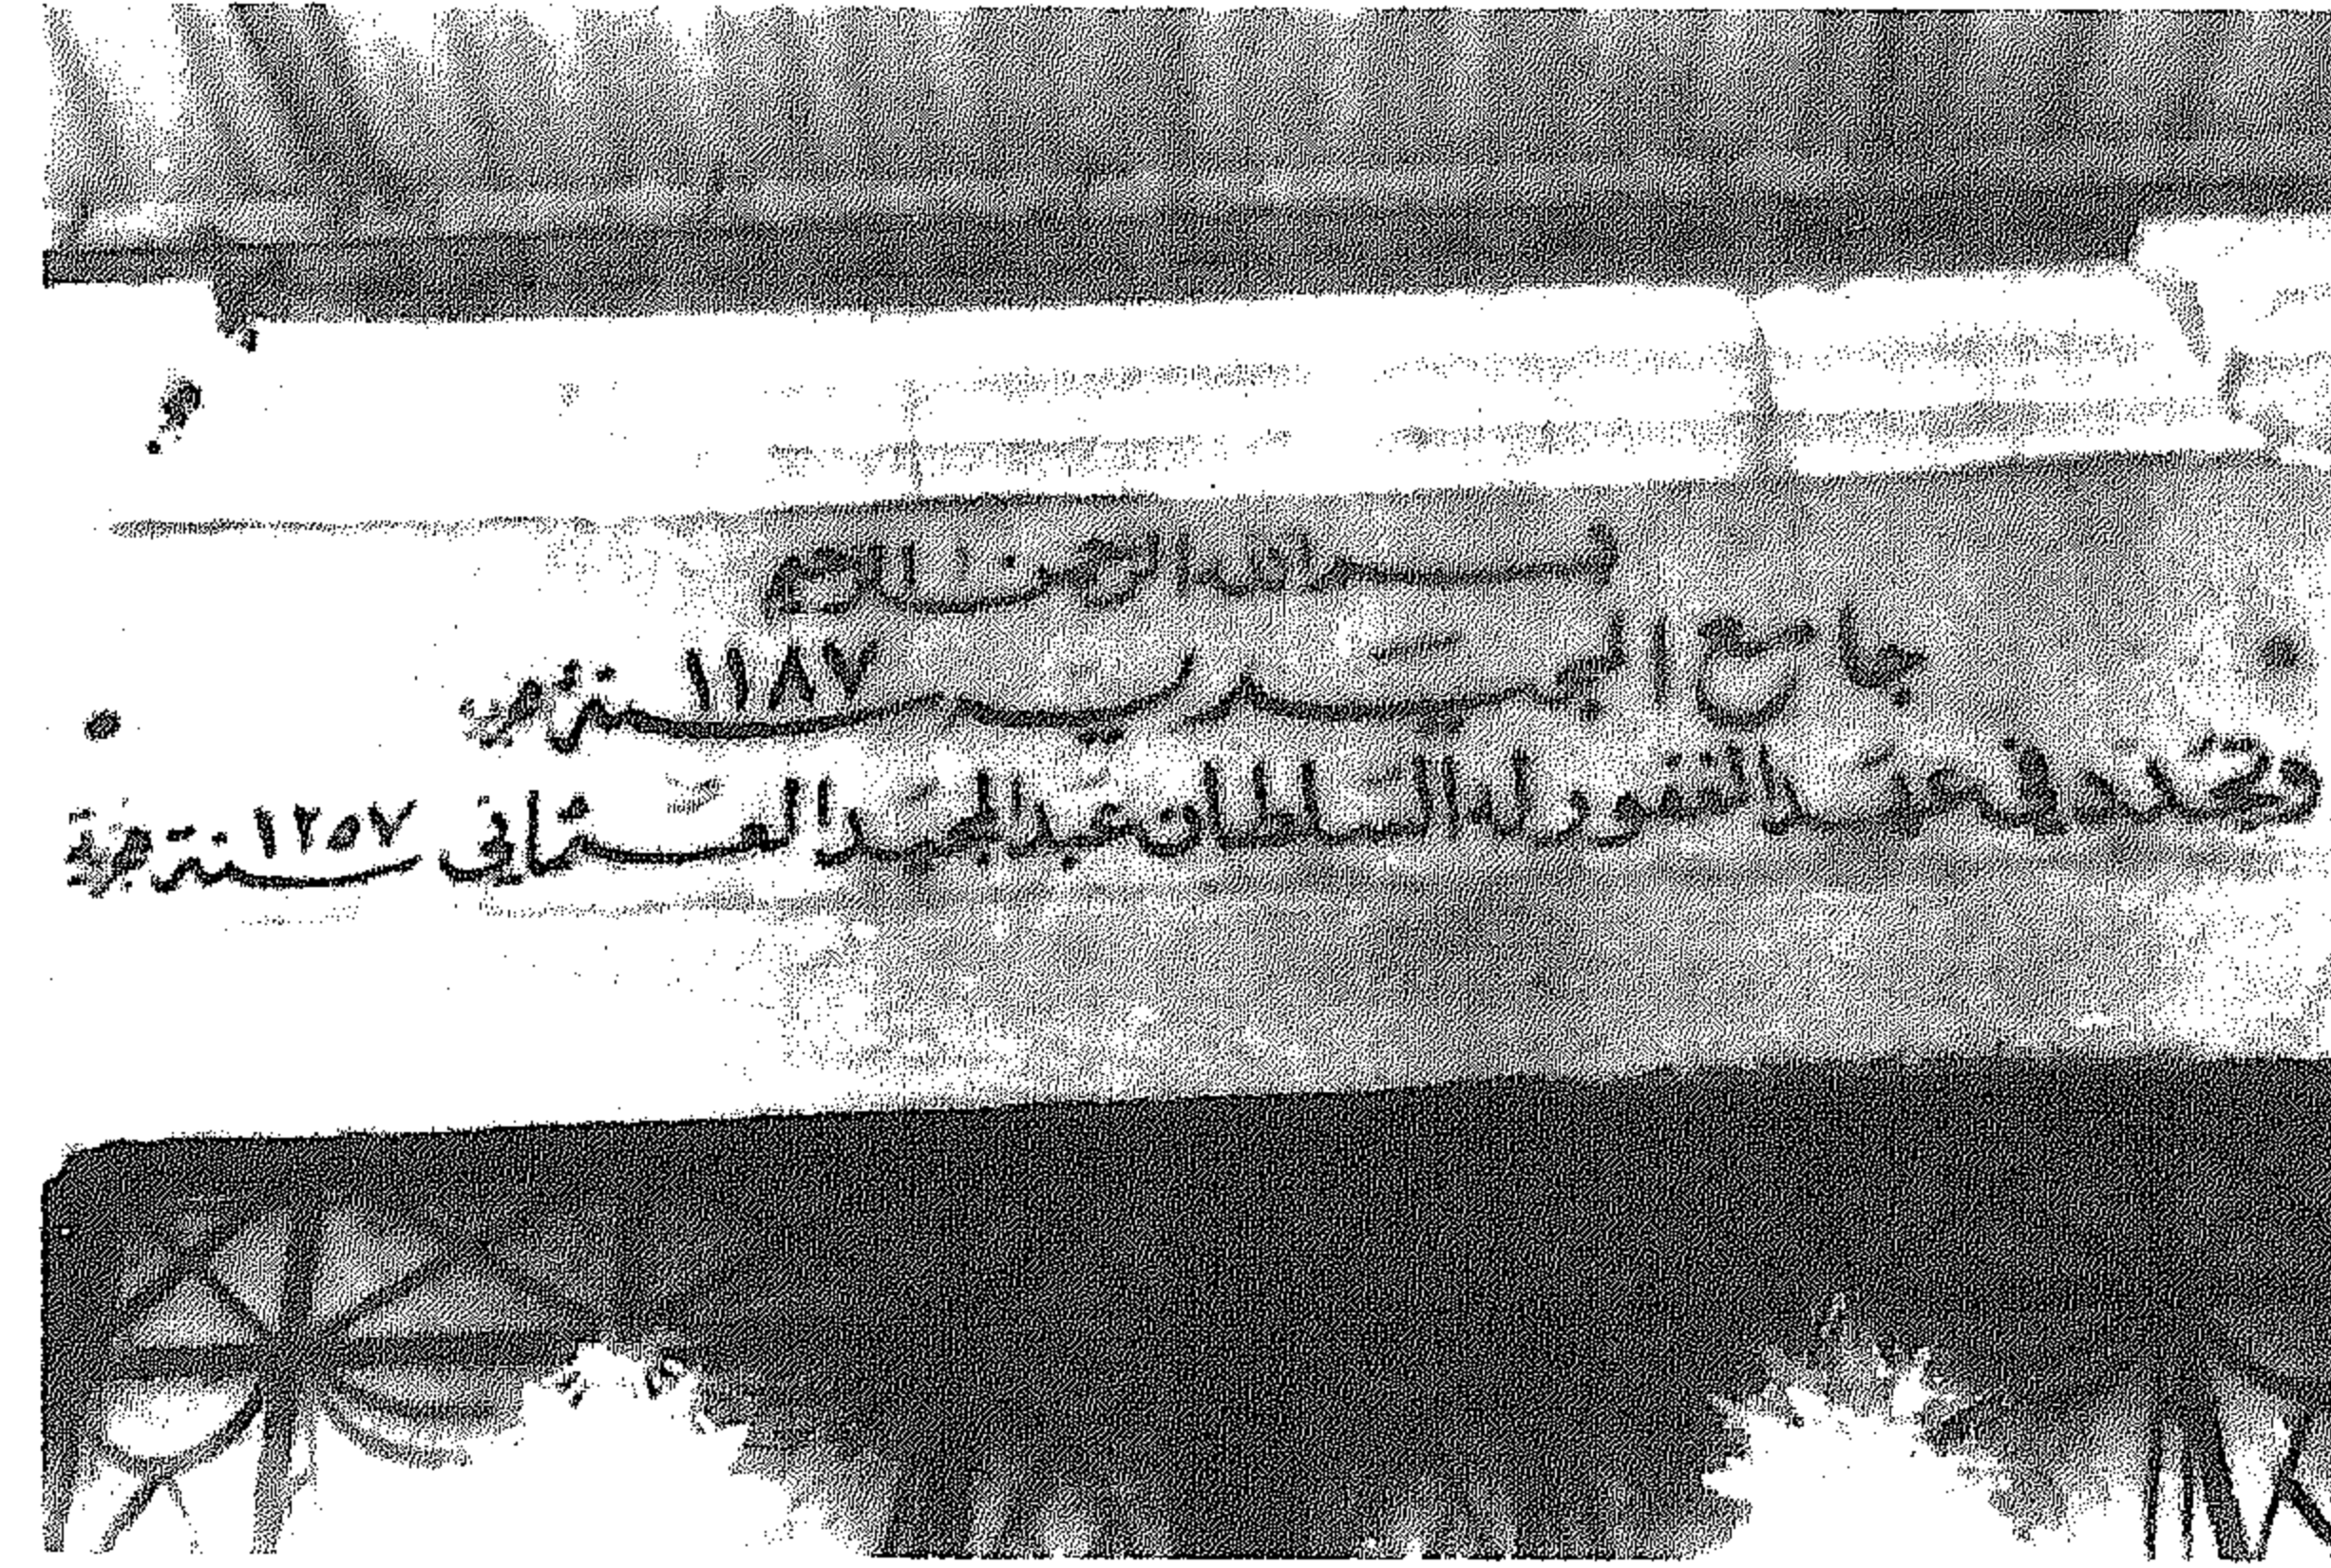 بسم الله الرحمن الرحيم
جامع سنة ١١٨٧ هجرية
وجدد في عهد المغفور له السلطان عبد المجيد العثماني سنة ١٢٥٧ هجرية